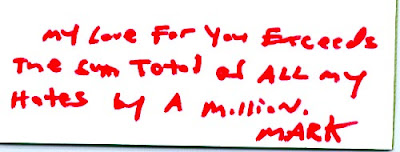 My Love For You Exceeds
The Sum Total of ALL my
Hates by A Million.
MARK